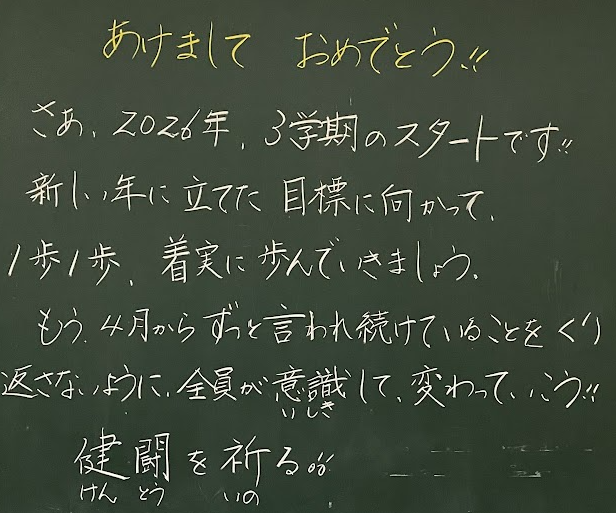 あけまして おめでとう!!
さあ、2026年、3学期のスタートです!!
新しい年に立てた目標に向かって、
1歩1歩、着実に歩んでいきましょう。
もう、4月からずっと言われ続けていることをくり
返さないように、全員が意識して、変わっていこう!!
いしき
健闘を祈る!!
けんとう いの